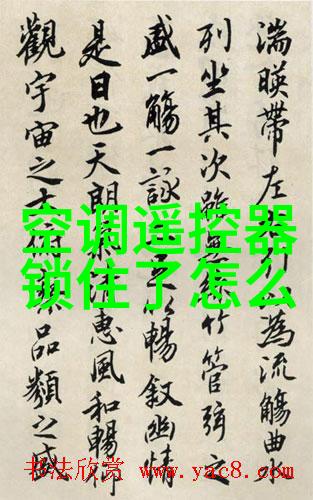 湍暎帶左右引為流觴曲
列坐其次雖無絲竹管弦之
盛一觴一詠足以暢叙幽情
是日也天朗氣清惠風和暢仰
觀宇宙之大俯察品類之盛
空调遥控器
锁住了怎么
书法欣赏 www.yac8.com